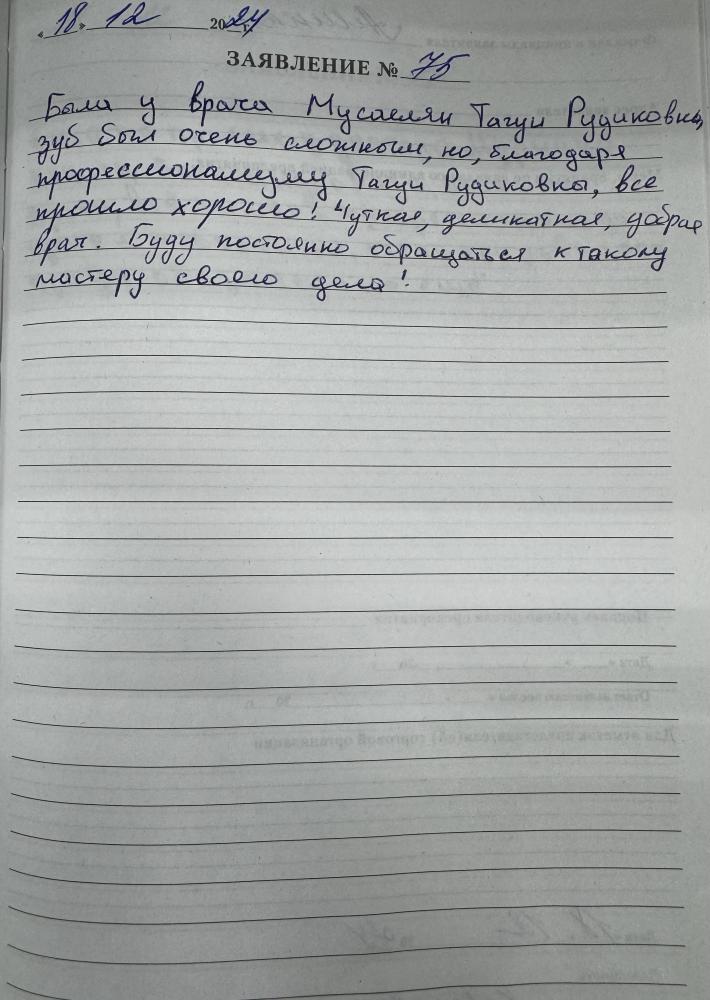 «18» 12 2024 г.
ЗАЯВЛЕНИЕ № 75
Была у врача Мусаелян Тагуи Рудиковны,
зуб был очень сложным, но, благодаря
профессионализму Тагуи Рудиковны, все
прошло хорошо! Чуткая, деликатная, добрая
врач. Буду постоянно обращаться к такому
мастеру своего дела!